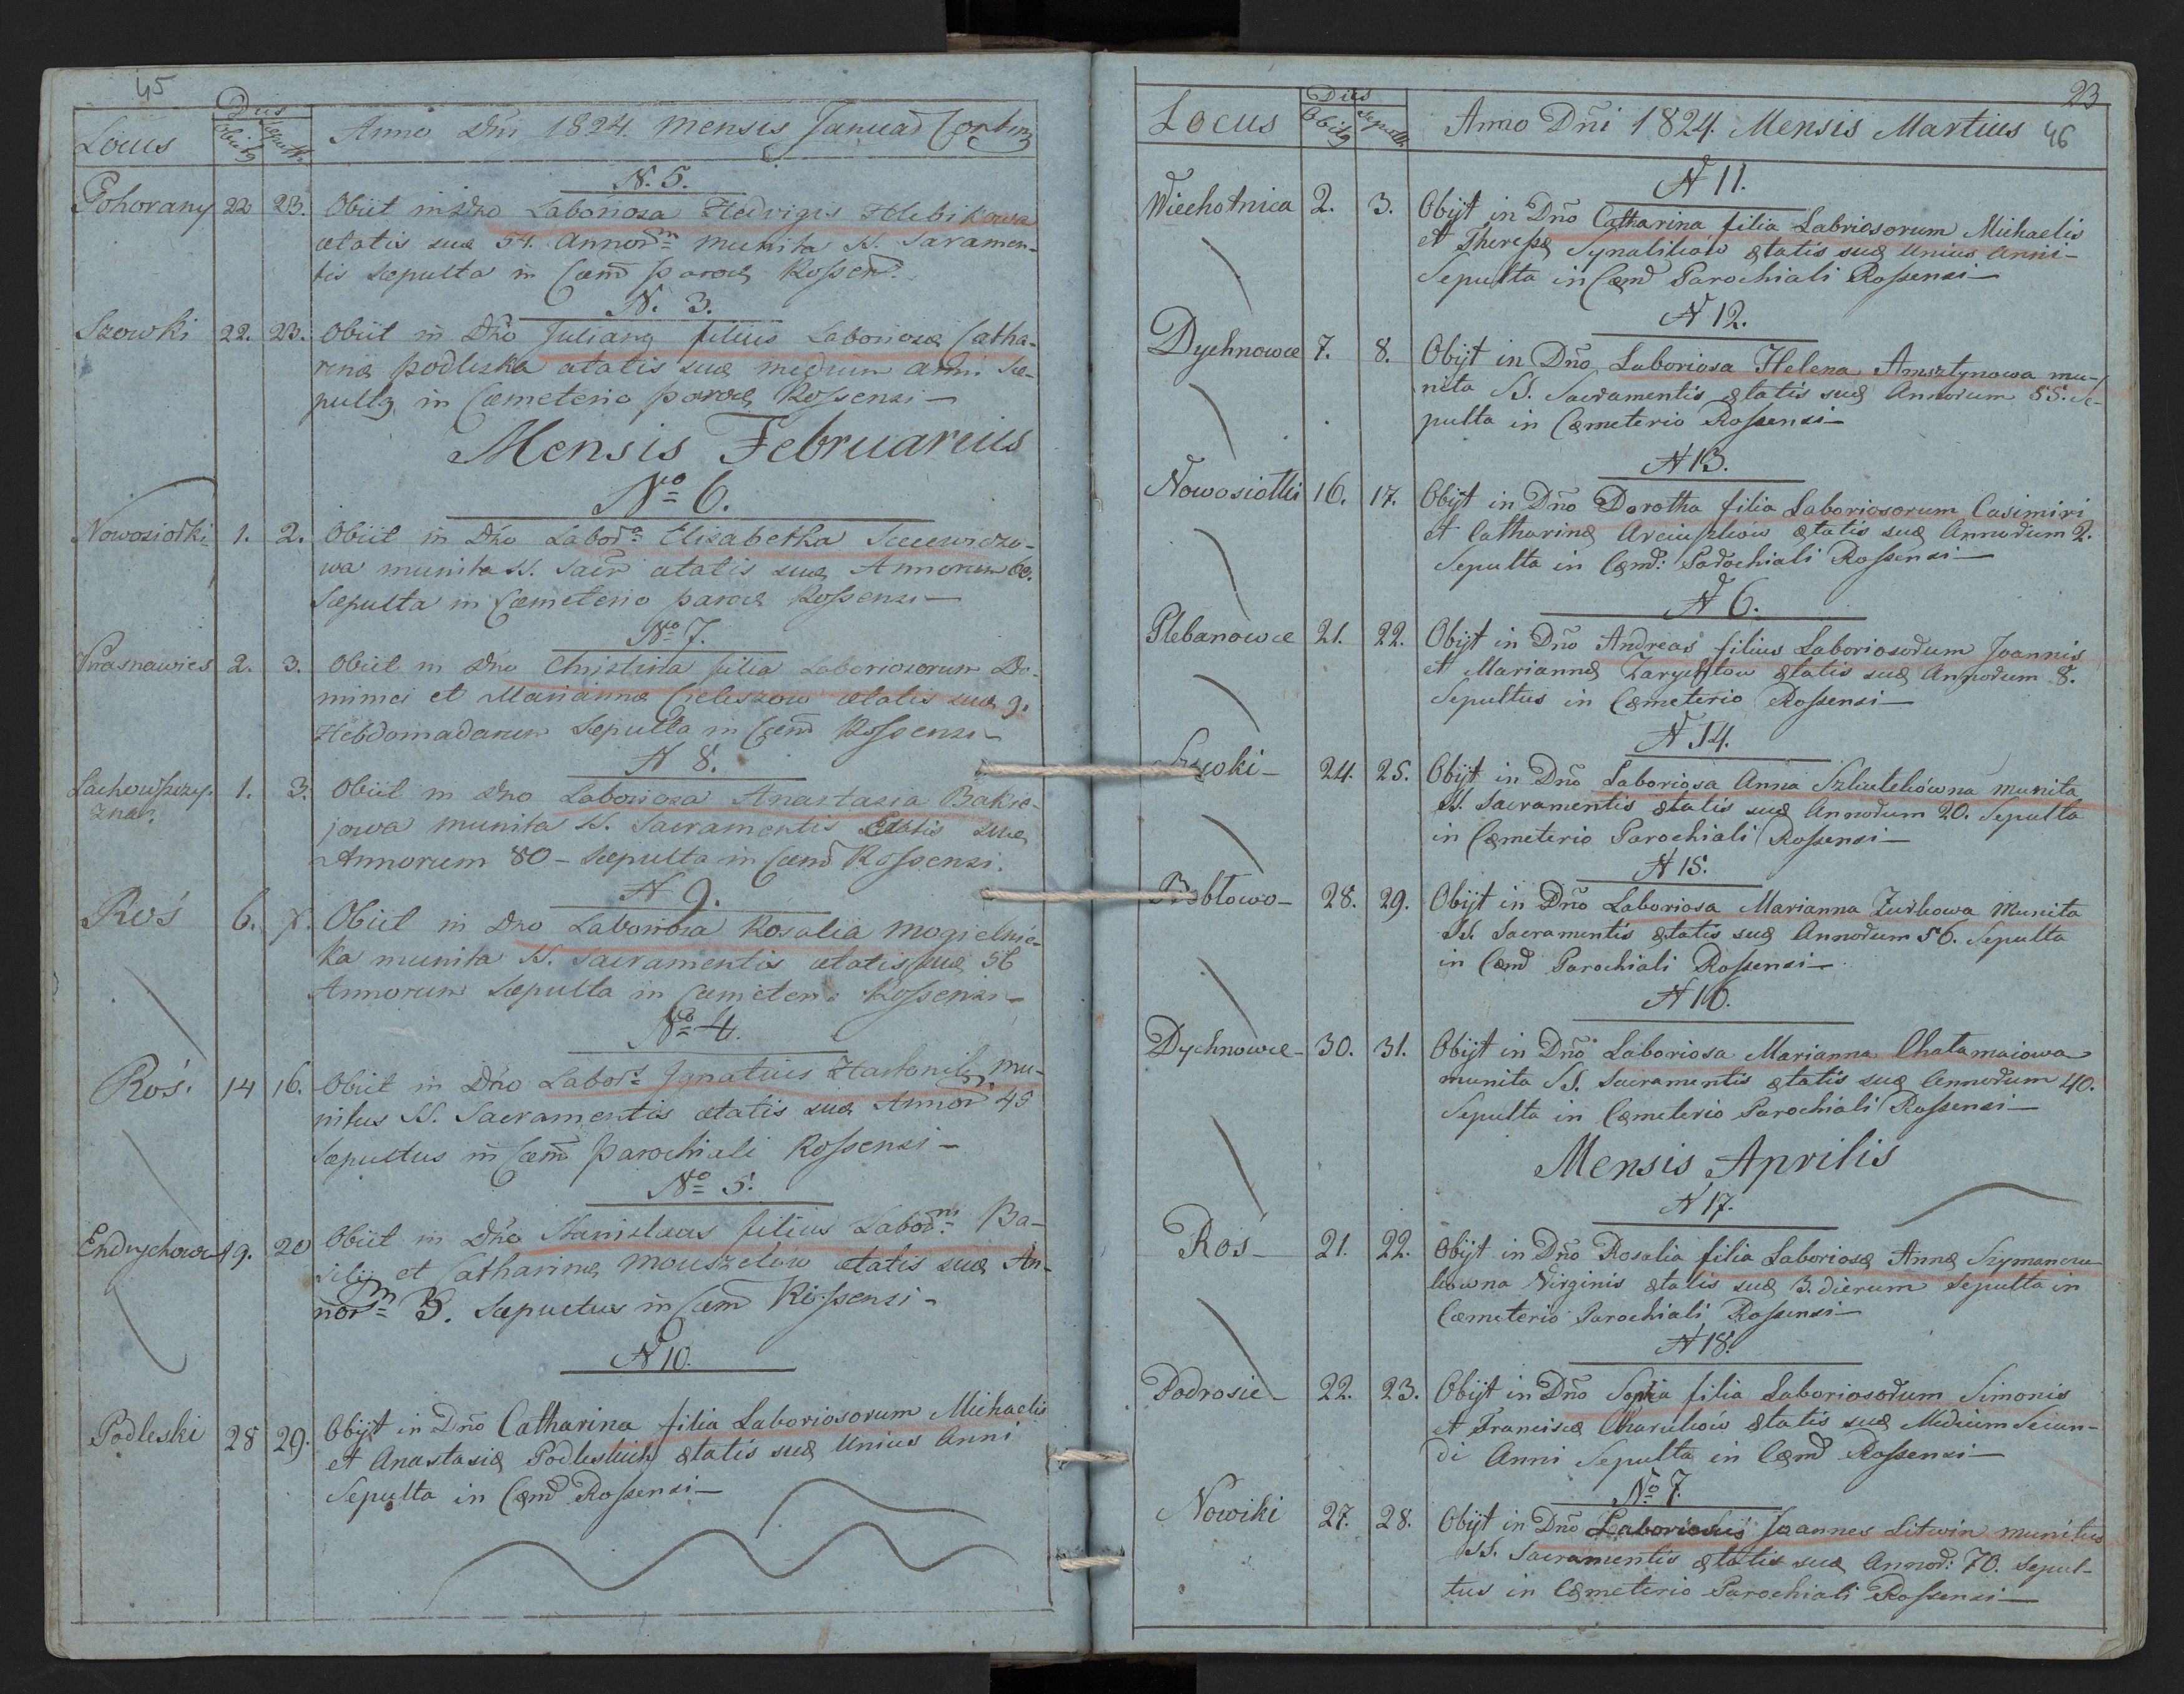 45
Locus Dies Obitus Sepult. Anno Dni 1824. mensis Januar
N. 5.
Pohorany 22 23. Obiit in Dno Laboriosa Hedvigis Hlebikowa
ætatis suæ 54. Annor munita SS. Sacramen-
tis Sæpulta in Cæm paroæ Rossen.
N. 3.
Szowki 22. 23. Obiit in Dno Julianus filius Laboriosæ Catha-
rinæ Podleska ætatis suæ medium anni Sæ-
pultus in Cæmeterio paroæ Rossensi –
Mensis Februarius
No 6.
Nowosiołki 1. 2. Obiit in Dno Labor. Elisabetha
wa munita SS. Sacr ætatis suæ Annorum
Sæpulta in Cæmeterio paroæ Rossensi –
No 7.
2. 3. Obiit in Dno Christina filia Laboriosorum Do-
minici et Mariannæ Cieleszow ætatis suæ 9.
Hebdomadarum Sæpulta in Cæm Rossensi –
N 8.
Lachowszczy- 1. 3. Obiit in Dno Laboriosa Anastasia Bakie-
zna. jowa munita SS. Sacramentis Ætatis suæ
Annorum 80 – Sæpulta in Cæm Rossensi.
N 9.
Roś 6. Obiit in Dno Laboriosa Rosalia Mogielnic-
ka munita SS. Sacramentis ætatis suæ 56
Annorum Sæpulta in Cæmeterio Rossensi –
No 4.
Roś. 14 16. Obiit in Dno Labors Ignatius mu-
nitus SS. Sacramentis ætatis suæ Annor 45
Sæpultus in Cæm parochiali Rossensi –
No 5.
Endrychowce 19. 20 Obiit in Dno Stanislaus filius Labor Ba-
silij et Catharinæ Mouszelow ætatis suæ An-
nor 3. Sæpultus in Cæm Rossensi –
N 10.
Podleski 28 29. Obijt in Dno Catharina filia Laboriosorum Michaelis
et Anastasiæ Podleskich ætatis suæ Unius Anni
Sepulta in Cæm Rossensi –
23
46
Locus Dies Obitus Sepult. Anno Dni 1824. Mensis Martius
N 11.
Wiechotnica 2. 3. Obijt in Dno Catharina filia Labriosorum Michaelis
et Theressæ Synalików ætatis suæ Unius Anni –
Sepulta in Cæm Parochiali Rossensi –
N 12.
Dychnowce 7. 8. Obijt in Dno Laboriosa Helena Amsztynowa mu-
nita SS. Sacramentis ætatis suæ Annorum 55. Se-
pulta in Cæmeterio Rossensi –
N 13.
Nowosiołki 16. 17. Obijt in Dno Dorotha filia Laboriosorum Casimiri
et Catharinæ Arciuszków ætatis suæ Annorum 2.
Sepulta in Cæm: Parochiali Rossensi –
N 6.
Plebanowce 21. 22. Obijt in Dno Andreas filius Laboriosorum Joannis
et Mariannæ Zarychtow ætatis suæ Annorum 8.
Sepultus in Cæmeterio Rossensi –
N 14.
24. 25. Obijt in Dno Laboriosa Anna Szkutekówna munita
SS. Sacramentis ætatis suæ Annorum 20. Sepulta
in Cæmeterio Parochiali Rossensi –
N 15.
Bobłowo – 28. 29. Obijt in Dno Laboriosa Marianna Żurkowa Munita
SS. Sacramentis ætatis suæ Annorum 56. Sepulta
in Cæm Parochiali Rossensi –
N 16.
Dychnowce – 30. 31. Obijt in Dno Laboriosa Marianna Chatamaiowa
munita SS. Sacramentis ætatis suæ Annorum 40.
Sepulta in Cæmeterio Parochiali Rossensi –
Mensis Aprilis
N 17.
Roś – 21. 22. Obijt in Dno Rosalia filia Laboriosæ Annæ Szymanow-
kowna Virginis ætatis suæ 3. dierum Sepulta in
Cæmeterio Parochiali Rossensi –
N 18.
Podrosie – 22. 23. Obijt in Dno Sophia filia Laboriosorum Simonis
et Franciscæ Charuków ætatis suæ Medium Secun-
di Anni Sepulta in Cæm Rossensi –
No 7.
Nowiki 27. 28. Obijt in Dno Laboriosus Joannes Litwin munitus
SS. Sacramentis ætatis suæ Annor: 70. Sepul-
tus in Cæmeterio Parochiali Rossensi –